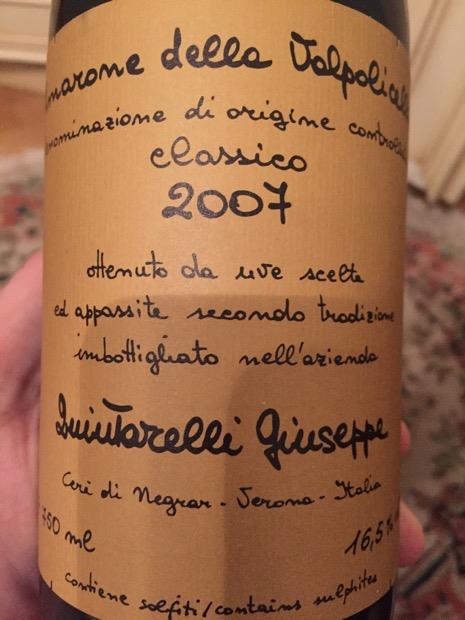 amarone della Valpolicella
denominazione di origine controllata
classico
2007
ottenuto da uve scelte
ed appassite secondo tradizione
imbottigliato nell'azienda
Quintarelli Giuseppe
Cerè di Negrar - Verona - Italia
750 ml
16,5%
Contiene solfiti/contains sulphites